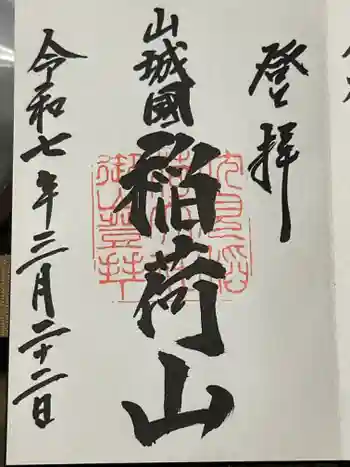 登拝
山城國
稲荷山
令和七年三月二十二日